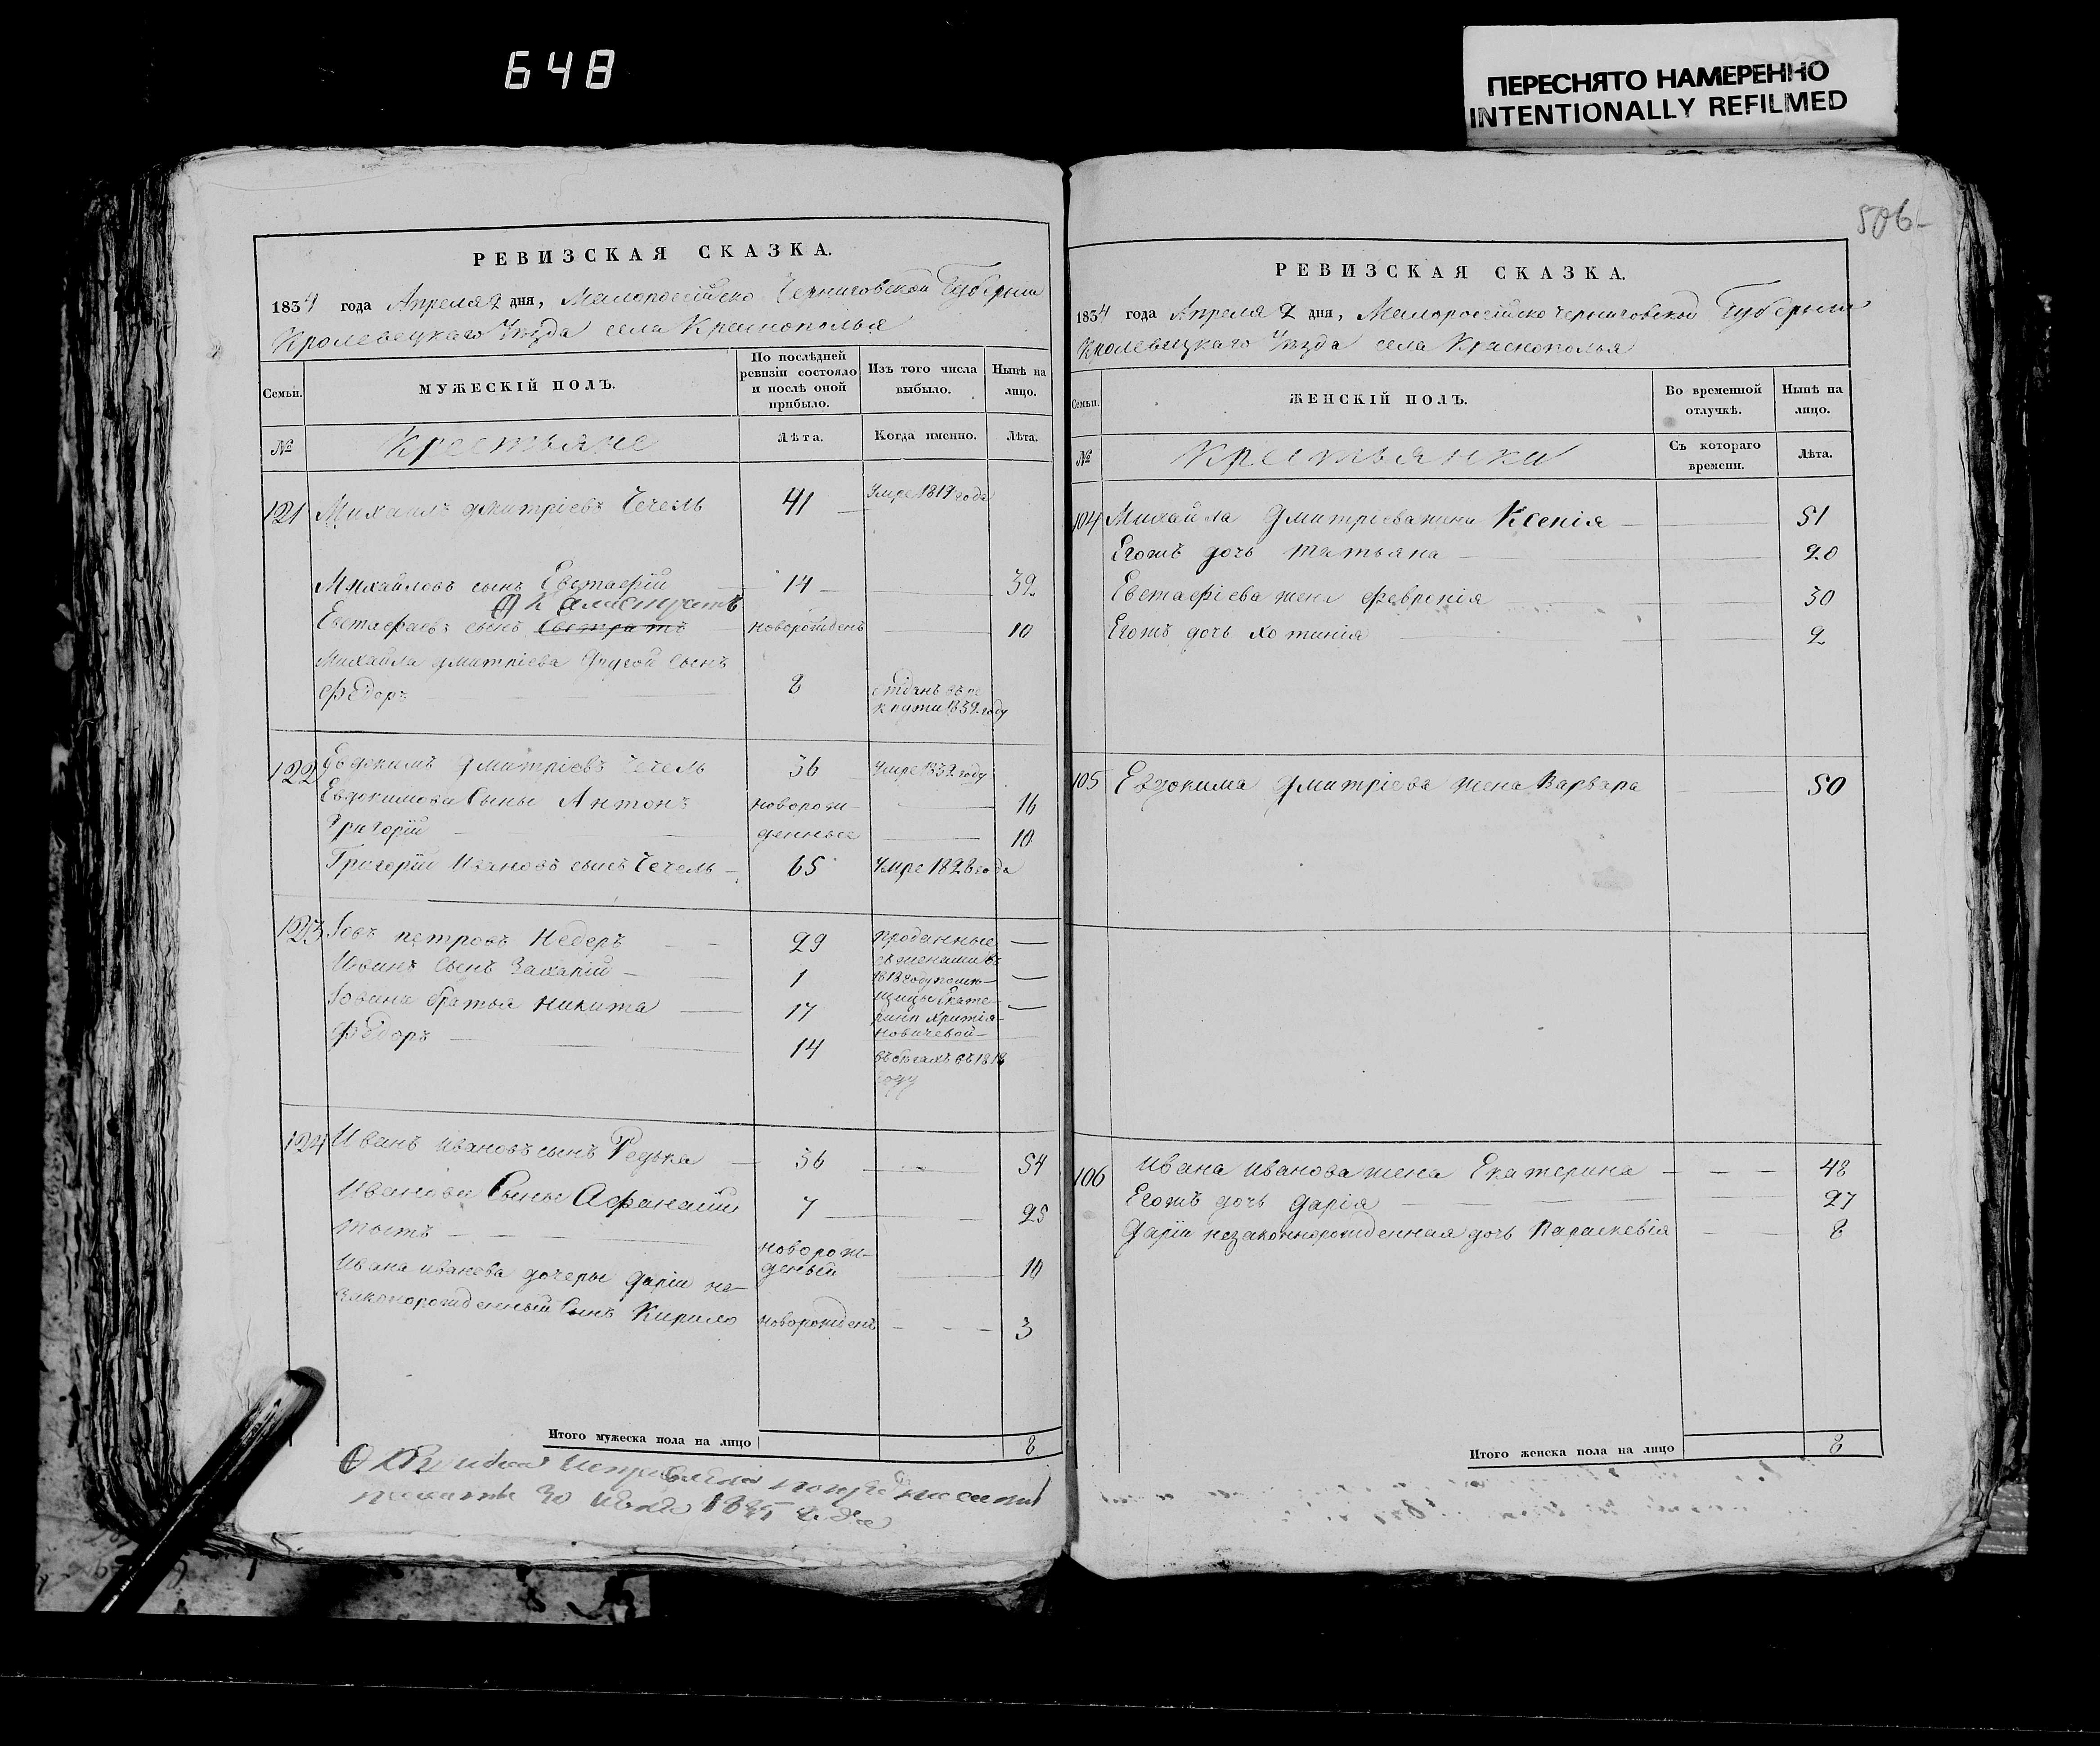 648
ПЕРЕСНЯТО НАМЕРЕННО
INTENTIONALLY REFILMED
506
РЕВИЗСКАЯ СКАЗКА.
1834 года Апреля 2 дня, Малороссійско Черниговской Губерніи
Кролевецкаго Уезда села Краснополья
Семьи.
МУЖЕСКІЙ ПОЛЪ.
По послѣдней ревизіи состояло и послѣ оной прибыло.
Изъ того числа выбыло.
Нынѣ на лицо.
№ Крестьяне Лѣта. Когда именно. Лѣта.
121 Михаилъ Дмитріевъ Чечель 41 Умре 1819 года
Михайловъ сынъ Евстафій 14 39
Калистратъ
Евстафіевъ сынъ Евстратъ новорожденъ 10
Михайла Дмитріева другой сынъ
Федоръ 8 отданъ въ ре
круты 1832 году
122 Евдокимъ Дмитріевъ Чечель 36 Умре 1832 году
Евдокимови сыны Антонъ новорож- 16
Григорій денные 10
Григорій Ивановъ сынъ Чечель 65 Умре 1828 года
123 Іовъ Петровъ Недеръ 29 Проданные
Ивинъ сынъ Захарій 1 съженами въ
1818 году поме-
Іовини братья Никита 17 щицы Екате-
рини
Федоръ 14 новичевой
въбегахъ въ 1818
году
124 Иванъ Ивановъ сынъ Редька 36 54
Иванови сыны Афанасій 7 25
новорож-
деный 10
Ивана Иванова дочеры Даріи не-
законорожденный сынъ Кирило новорожденъ 3
Итого мужеска пола на лицо 8
30 1835 года
РЕВИЗСКАЯ СКАЗКА.
1834 года Апреля 2 дня, Малороссійско Черниговской Губерніи
Кролевецкаго Уезда села Краснополья
Семьи.
ЖЕНСКІЙ ПОЛЪ.
Во временной отлучкѣ.
Нынѣ на лицо.
№ Крестьянки Съ котораго времени. Лѣта.
104 Михайла Дмитріева жена Ксенія 51
Егожъ дочь Татьяна 20
Евстафіева жена Февронія 30
Егожъ дочь Хотинія 2
105 Евдокима Дмитріева жена Варвара 50
106 Ивана Иванова жена Екатерина 48
Егожъ дочь Дарія 27
Даріи незаконнорожденная дочь Параскевія 8
Итого женска пола на лицо 8